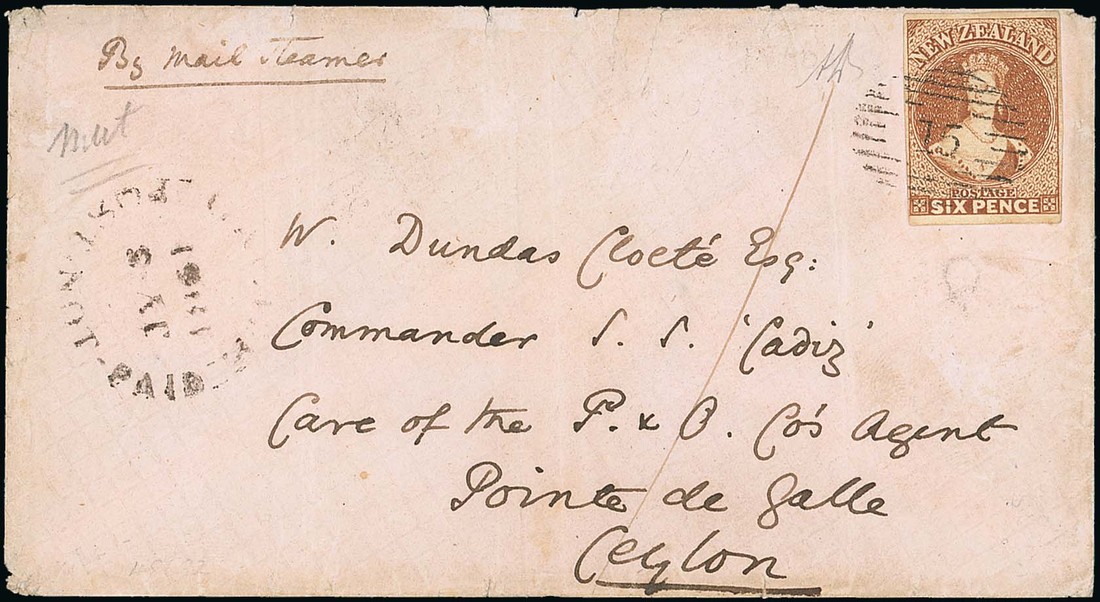 By Mail Steamer
NEW ZEALAND
15
POSTAGE
SIX PENCE
PAID
JY 3
1861
W. Dundas Cloeté Esq:
Commander S. S. 'Cadiz'
Care of the P. & O. Co's Agent
Pointe de Galle
Ceylon